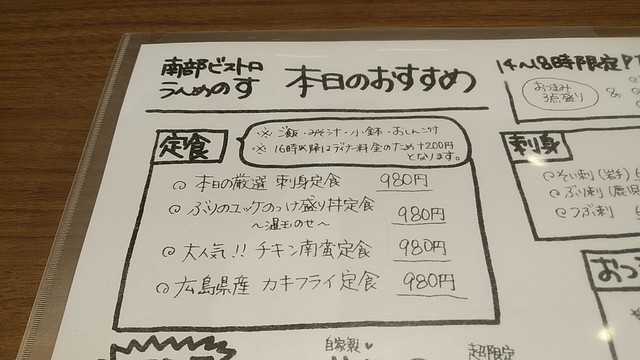 南部ビストロ
うんめのす
本日のおすすめ
定食
※ ご飯・みそ汁・小鉢・おしんこ付
※ 16時以降はディナー料金のため+200円
となります。
◎ 本日の厳選 刺身定食 980円
◎ ぶりのユッケのっけ盛り丼定食 980円
～温玉のせ～
◎ 大人気!! チキン南蛮定食 980円
◎ 広島県産 カキフライ定食 980円
自家製♥
14～18時限定
おつまみ
3点盛り
&
刺身
◎ そい刺(岩手)
◎ ぶり刺(鹿児
◎ つぶ刺
おつ
超限定